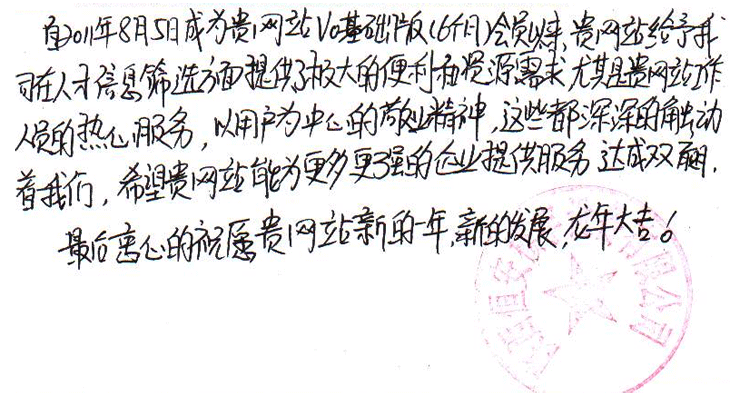 自2011年8月5日成为贵网站V0基础版(6个月)会员以来,贵网站给予我
司在人才信息筛选方面提供了极大的便利和资源需求尤其是贵网站工作
人员的热心服务,以用户为中心的敬业精神,这些都深深的触动
着我们,希望贵网站能为更多更强的企业提供服务 达成双赢.
最后衷心的祝愿贵网站新的一年,新的发展,龙年大吉。
有限公司